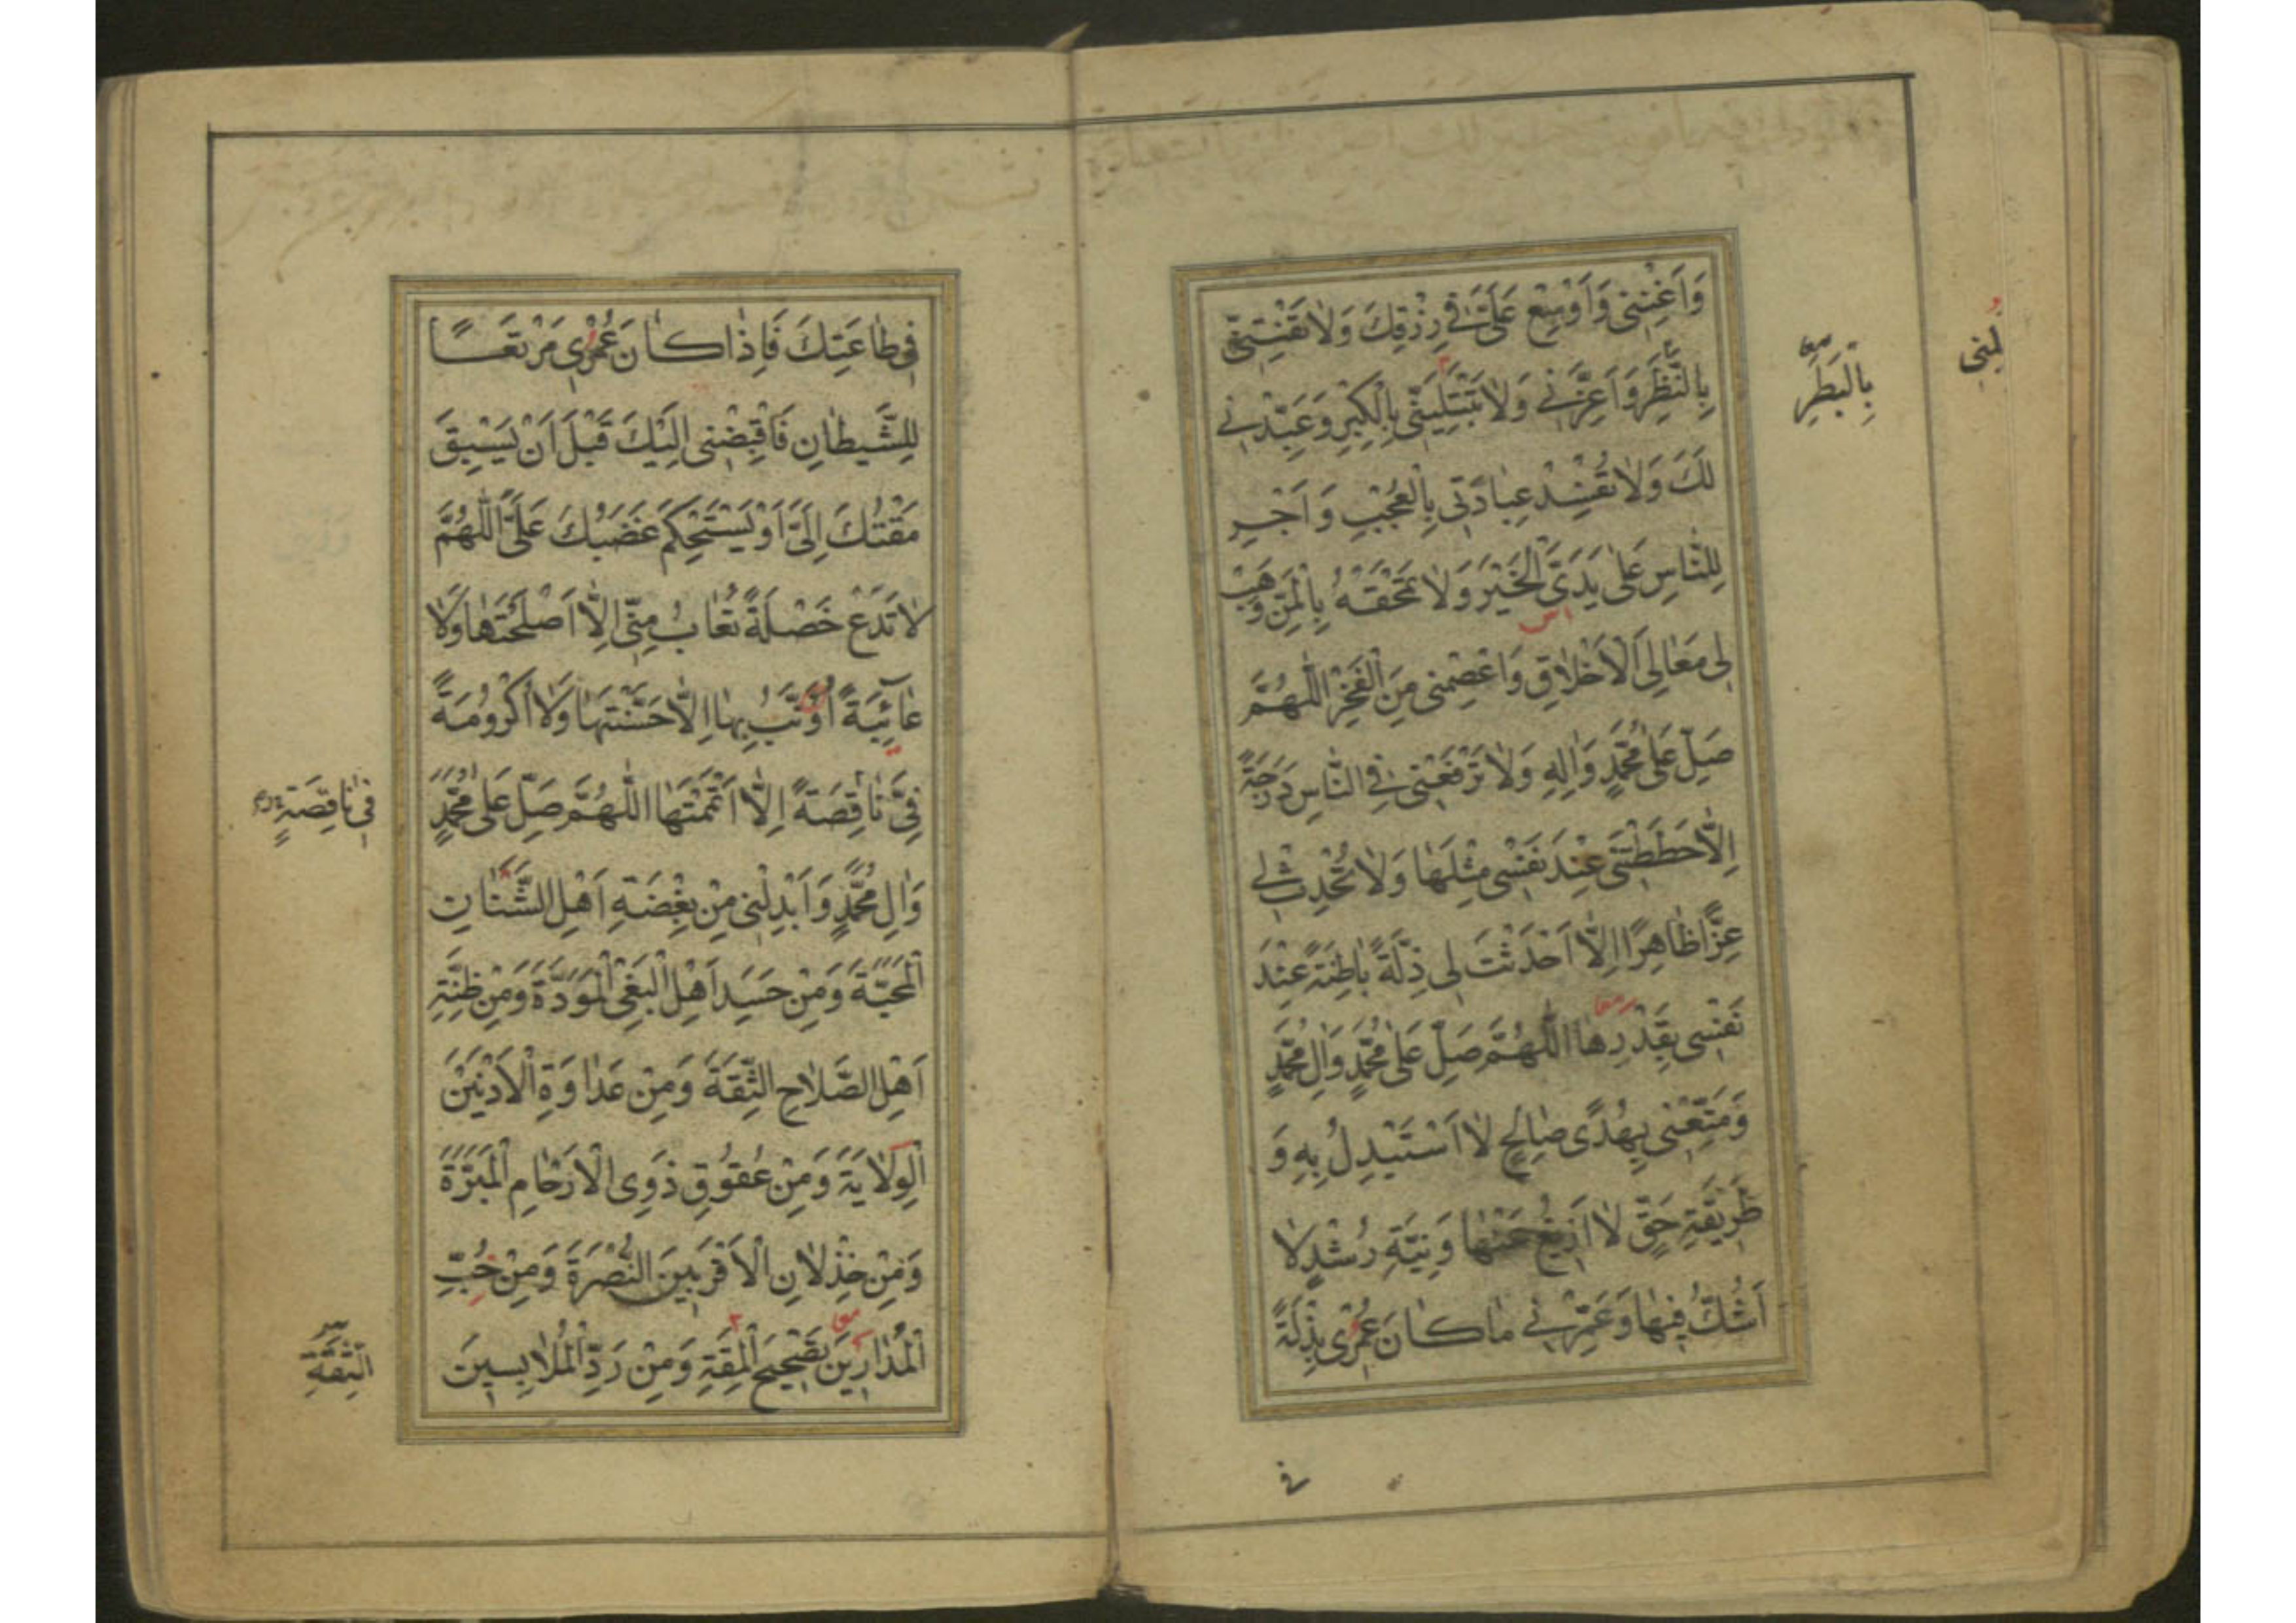 وَاَغْنِنِى وَاَوْسِعْ عَلَىَّ فِى رِزْقِكَ وَلَا تَفْتِنِّى
بِالنَّظَرِ وَاَعِزَّنِى وَلَا تَبْتَلِيَنِّى بِالْكِبْرِ وَعَبِّدْنِى
لَكَ وَلَا تُفْسِدْ عِبَادَتِى بِالْعُجْبِ وَاَجْرِ
لِلنَّاسِ عَلٰى يَدَىَّ الْخَيْرَ وَلَا تَمْحَقْهُ بِالْمَنِّ وَهَبْ
لِى مَعَالِىَ الْاَخْلَاقِ وَاعْصِمْنِى مِنَ الْفَخْرِ اَللّٰهُمَّ
صَلِّ عَلٰى مُحَمَّدٍ وَاٰلِهِ وَلَا تَرْفَعْنِى فِى النَّاسِ دَرَجَةً
اِلَّا حَطَطْتَنِى عِنْدَ نَفْسِى مِثْلَهَا وَلَا تُحْدِثْ لِى
عِزًّا ظَاهِرًا اِلَّا اَحْدَثْتَ لِى ذِلَّةً بَاطِنَةً عِنْدَ
نَفْسِى بِقَدْرِهَا اَللّٰهُمَّ صَلِّ عَلٰى مُحَمَّدٍ وَاٰلِ مُحَمَّدٍ
وَمَتِّعْنِى بِهُدًى صَالِحٍ لَا اَسْتَبْدِلُ بِهِ وَ
طَرِيقَةِ حَقٍّ لَا اَزِيغُ عَنْهَا وَنِيَّةِ رُشْدٍ لَا
اَشُكُّ فِيهَا وَعَمِّرْنِى مَا كَانَ عُمْرِى بِذْلَةً
بِالْبَطَرِ
فِى طَاعَتِكَ فَاِذَا كَانَ عُمْرِى مَرْتَعًا
لِلشَّيْطَانِ فَاقْبِضْنِى اِلَيْكَ قَبْلَ اَنْ يَسْبِقَ
مَقْتُكَ اِلَىَّ اَوْ يَسْتَحْكِمَ غَضَبُكَ عَلَىَّ اَللّٰهُمَّ
لَا تَدَعْ خَصْلَةً تُعَابُ مِنِّى اِلَّا اَصْلَحْتَهَا وَلَا
عَائِبَةً اُؤَنَّبُ بِهَا اِلَّا حَسَّنْتَهَا وَلَا اُكْرُومَةً
فِىَّ نَاقِصَةً اِلَّا اَتْمَمْتَهَا اَللّٰهُمَّ صَلِّ عَلٰى مُحَمَّدٍ
وَاٰلِ مُحَمَّدٍ وَاَبْدِلْنِى مِنْ بِغْضَةِ اَهْلِ الشَّنَاٰنِ
الْمَحَبَّةَ وَمِنْ حَسَدِ اَهْلِ الْبَغْىِ الْمَوَدَّةَ وَمِنْ ظِنَّةِ
اَهْلِ الصَّلَاحِ الثِّقَةَ وَمِنْ عَدَاوَةِ الْاَدْنَيْنَ
الْوِلَايَةَ وَمِنْ عُقُوقِ ذَوِى الْاَرْحَامِ الْمَبَرَّةَ
وَمِنْ خِذْلَانِ الْاَقْرَبِينَ النُّصْرَةَ وَمِنْ حُبِّ
الْمُدَارِينَ تَصْحِيحَ الْمِقَةِ وَمِنْ رَدِّ الْمُلَابِسِينَ
فِى نَاقِصَةٍ
الثِّقَةِ